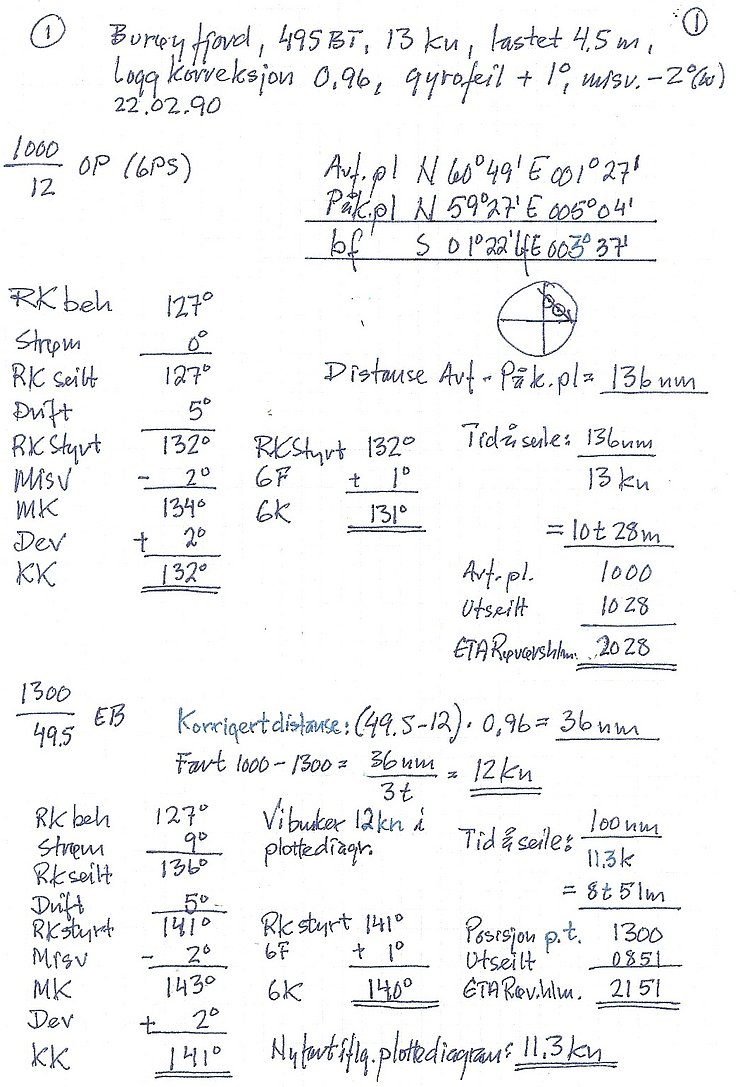 ① ①
Burøyfjord, 495 BT, 13 kn, lastet 4.5 m,
Logg korreksjon 0.96, gyrofeil + 1°, misv. -2°(w)
22.02.90
1000
12 OP (GPS)
Avf. pl N 60°49' E 001°27'
Påk. pl N 59°27' E 005°04'
bf S 01°22' lf E 003°37'
RK beh 127°
Strøm 0°
RK seilt 127°
Drift 5°
RK Styrt 132°
Misv - 2°
MK 134°
Dev + 2°
KK 132°
RK Styrt 132°
GF + 1°
GK 131°
Distanse Avf - Påk. pl = 136 nm
Tid å seile: 136 nm
13 kn
= 10t 28m
Avf. pl. 1000
Utseilt 1028
ETA 2028
1300
49.5 EB
Korrigert distanse: (49.5-12) · 0,96 = 36 nm
Fart 1000 - 1300 = 36 nm
3t = 12 kn
RK beh 127°
Strøm 9°
RK seilt 136°
Drift 5°
RK styrt 141°
Misv - 2°
MK 143°
Dev + 2°
KK 141°
Vi bruker 12 kn i
plottediagr.
RK styrt 141°
GF + 1°
GK 140°
Tid å seile: 100 nm
11.3 k
= 8t 51m
Posisjon p.t. 1300
Utseilt 0851
ETA Røv.hlm. 2151
Ny fart iflg. plottediagram: 11.3 kn